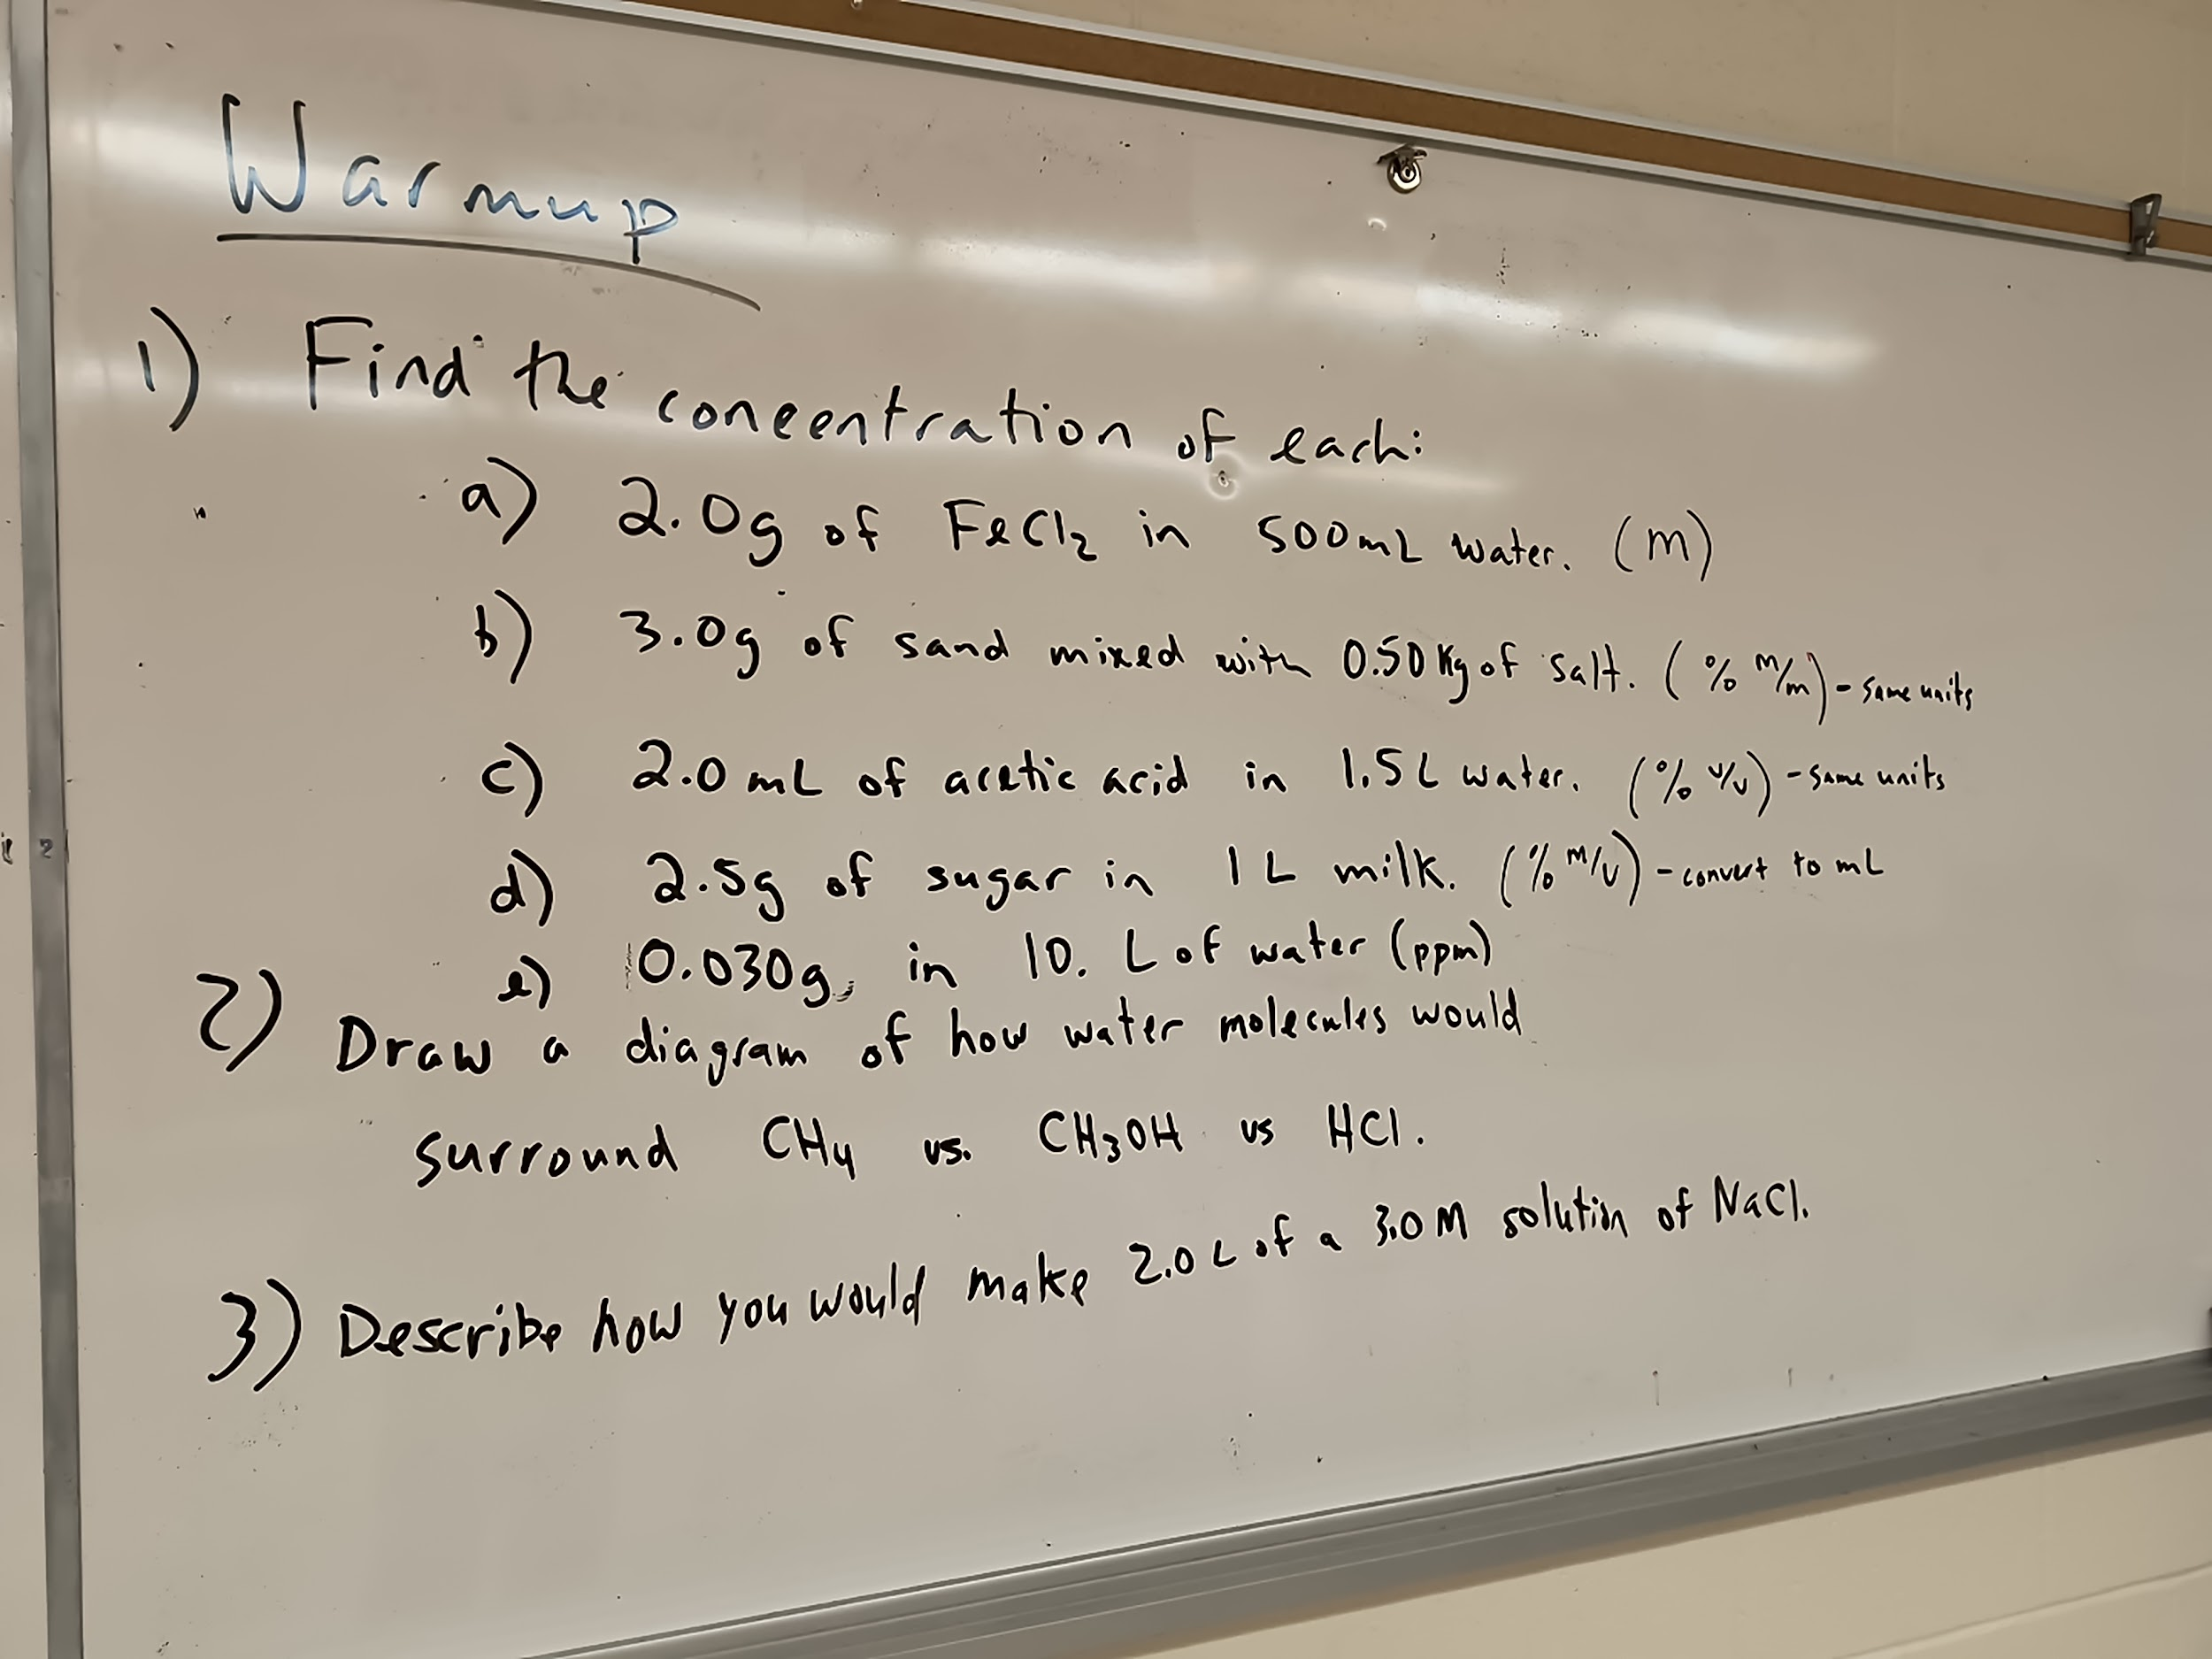 Warmup
1) Find the concentration of each:
a) 2.0g of FeCl₂ in 500mL water. (M)
b) 3.0g of sand mixed with 0.50 Kg of salt. (% m/m) - same units
c) 2.0 mL of acetic acid in 1.5 L water. (% v/v) - same units
d) 2.5g of sugar in 1 L milk. (% m/v) - convert to mL
e) 0.030g in 10. L of water (ppm)
2) Draw a diagram of how water molecules would
surround CH₄ vs. CH₃OH vs HCl.
3) Describe how you would make 2.0 L of a 3.0 M solution of NaCl.